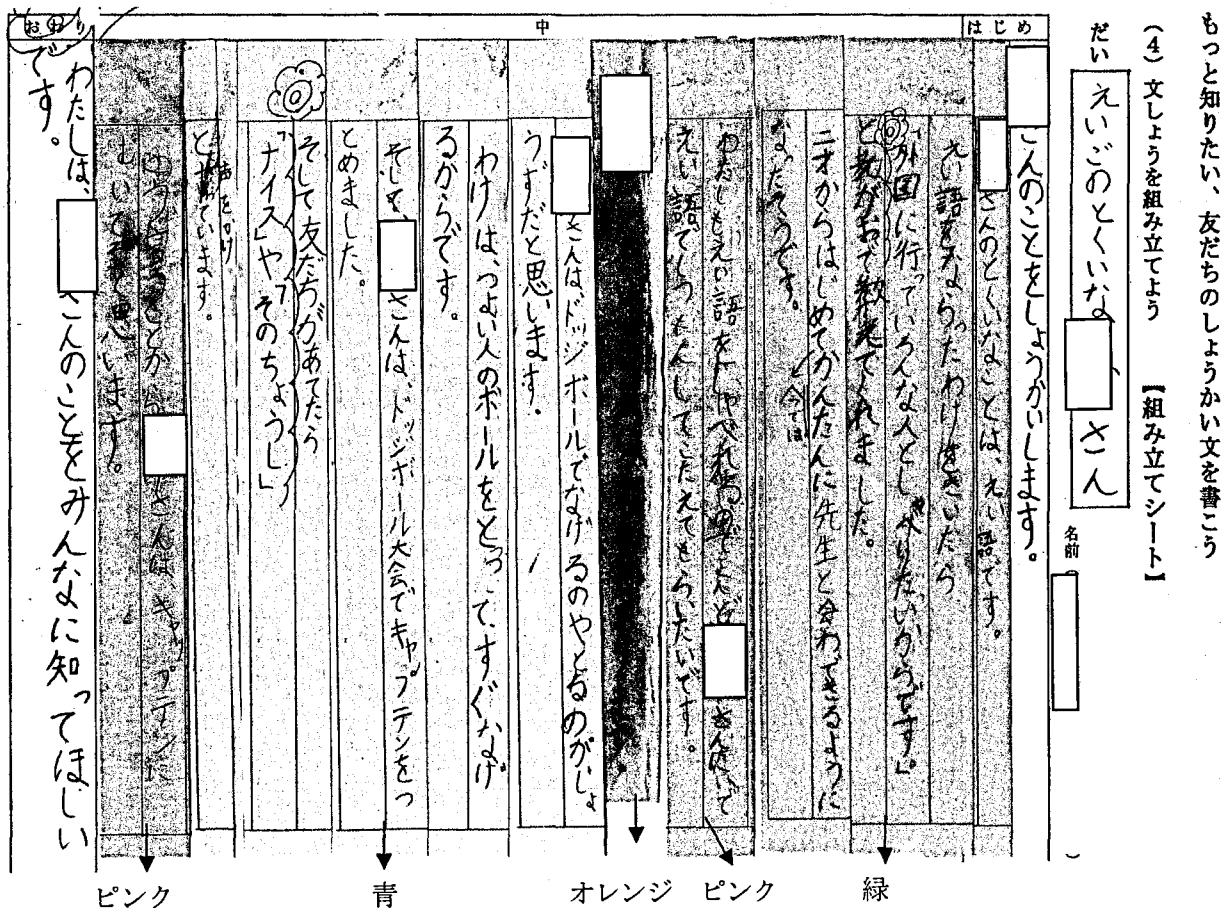 もっと知りたい、友だちのしょうかい文を書こう
(4) 文しょうを組み立てよう 【組み立てシート】
だい えいごのとくいな さん
名前( )
はじめ
さんのことをしょうかいします。
中
さんのとくいなことは、えい語です。
えい語をならったわけをきいたら
「外国に行っていろんな人としゃべりたいからです」。
と教えてくれました。
二才からはじめてかんたんに先生と会わできるように
なったそうです。
今では
わたしもえい語を
えい語でしつもんしてこたえてもらいたいです。
さんはドッジボールでなげるのやとるのがじょ
うずだと思います。
わけは、つよい人のボールをとって、すぐなげ
るからです。
そして、 さんは、ドッジボール大会でキャプテンをつ
とめました。
そして友だちがあてたら
「ナイス」や「そのちょうし」
と
声をかけ
ています。
さんはキャプテンに
むいてると思います。
おわり
わたしは、 さんのことをみんなに知ってほしい
です。
ピンク
青
オレンジ
ピンク
緑